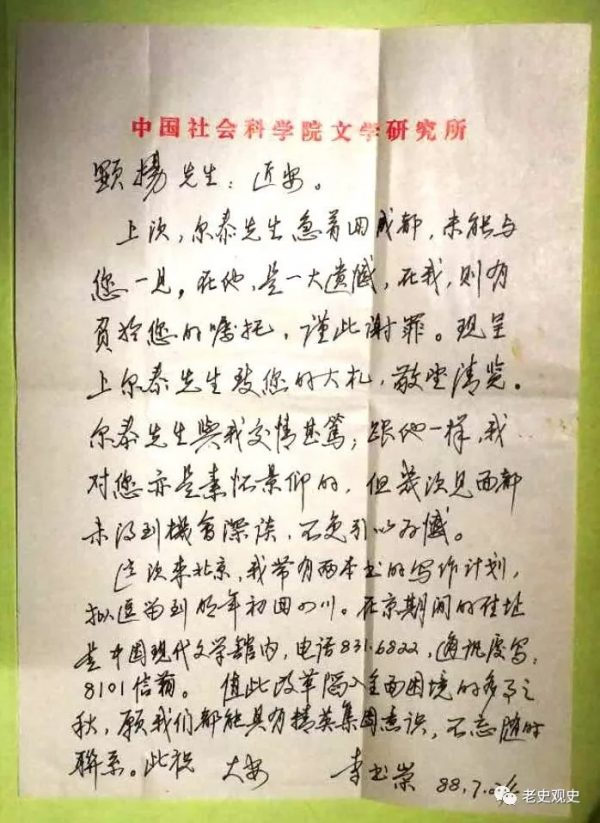 中国社会科学院文学研究所
顕揚先生：近安。
上次，尔泰先生急着回成都，未能与
您一见，在他，是一大遗憾，在我，则有
負於您的嘱托，谨此谢罪。现呈
上尔泰先生致您的大札，敬望清览。
尔泰先生與我交情甚篤，跟他一样，我
对您亦是素怀景仰的，但幾次见面都
未得到機會深谈，不免引以为憾。
这次来北京，我带有两本书的写作计划，
拟逗留到明年初回四川。在京期间的住址
是中国现代文学馆内，电话831.6822，通讯处写：
8101信箱。值此改革陷入全面困境的多事之
秋，願我们都能具有精英集團意识，不忘随时
联系。此祝 大安 李书崇 88.7.
老史观史